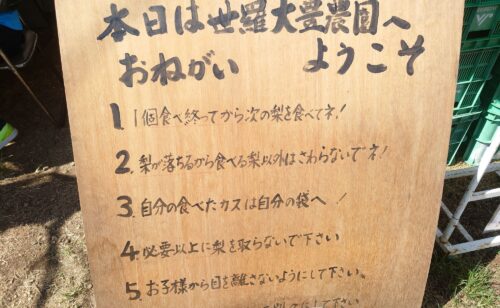 本日は世羅大豊農園へ
おねがい ようこそ
1. 1個食べ終ってから次の梨を食べてネ!
2. 梨が落ちるから食べる梨以外はさわらないでネ!
3. 自分の食べたカスは自分の袋へ!
4. 必要以上に梨を取らないで下さい
5. お子様から目を離さないようにして下さい。
にして下さい